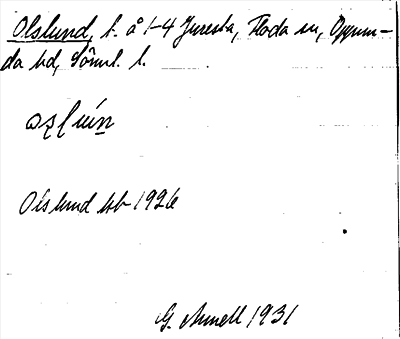 Olslund, h. å 1-4 Juresta, Floda sn, Oppun-
da hd, Sörml. l.
Oislund kb 1926
G. Armell 1931